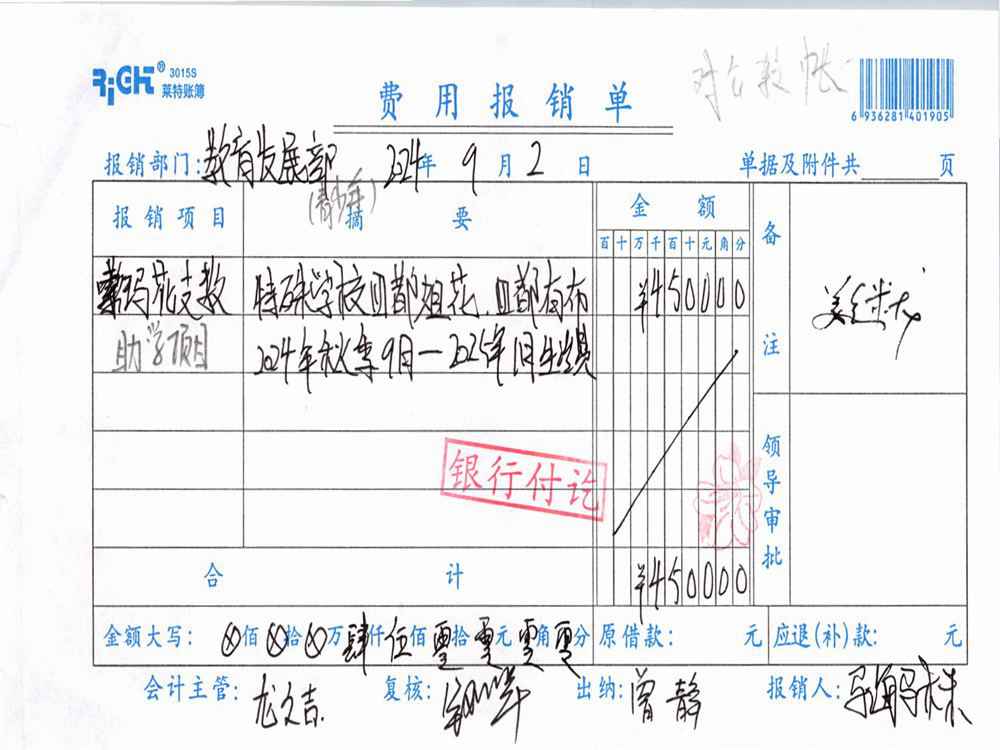 RiGHT® 3015S
莱特账簿
费用报销单
对公转帐
6 936281 401905
报销部门:教育发展部 2024年 9月 2日 单据及附件共 页
(青少年)
报销项目 摘要 金额 备注
百 十 万 千 百 十 元 角 分
索玛花支教 特殊学校 ¥450000
助学项目 2024年秋季9月—2025年1月生活费
银行付讫
领导审批
合计 ¥450000
金额大写: ⊗佰⊗拾⊗万肆仟伍佰零拾零元零角零分 原借款: 元 应退(补)款: 元
会计主管:龙文吉 复核: 出纳:曾静 报销人: